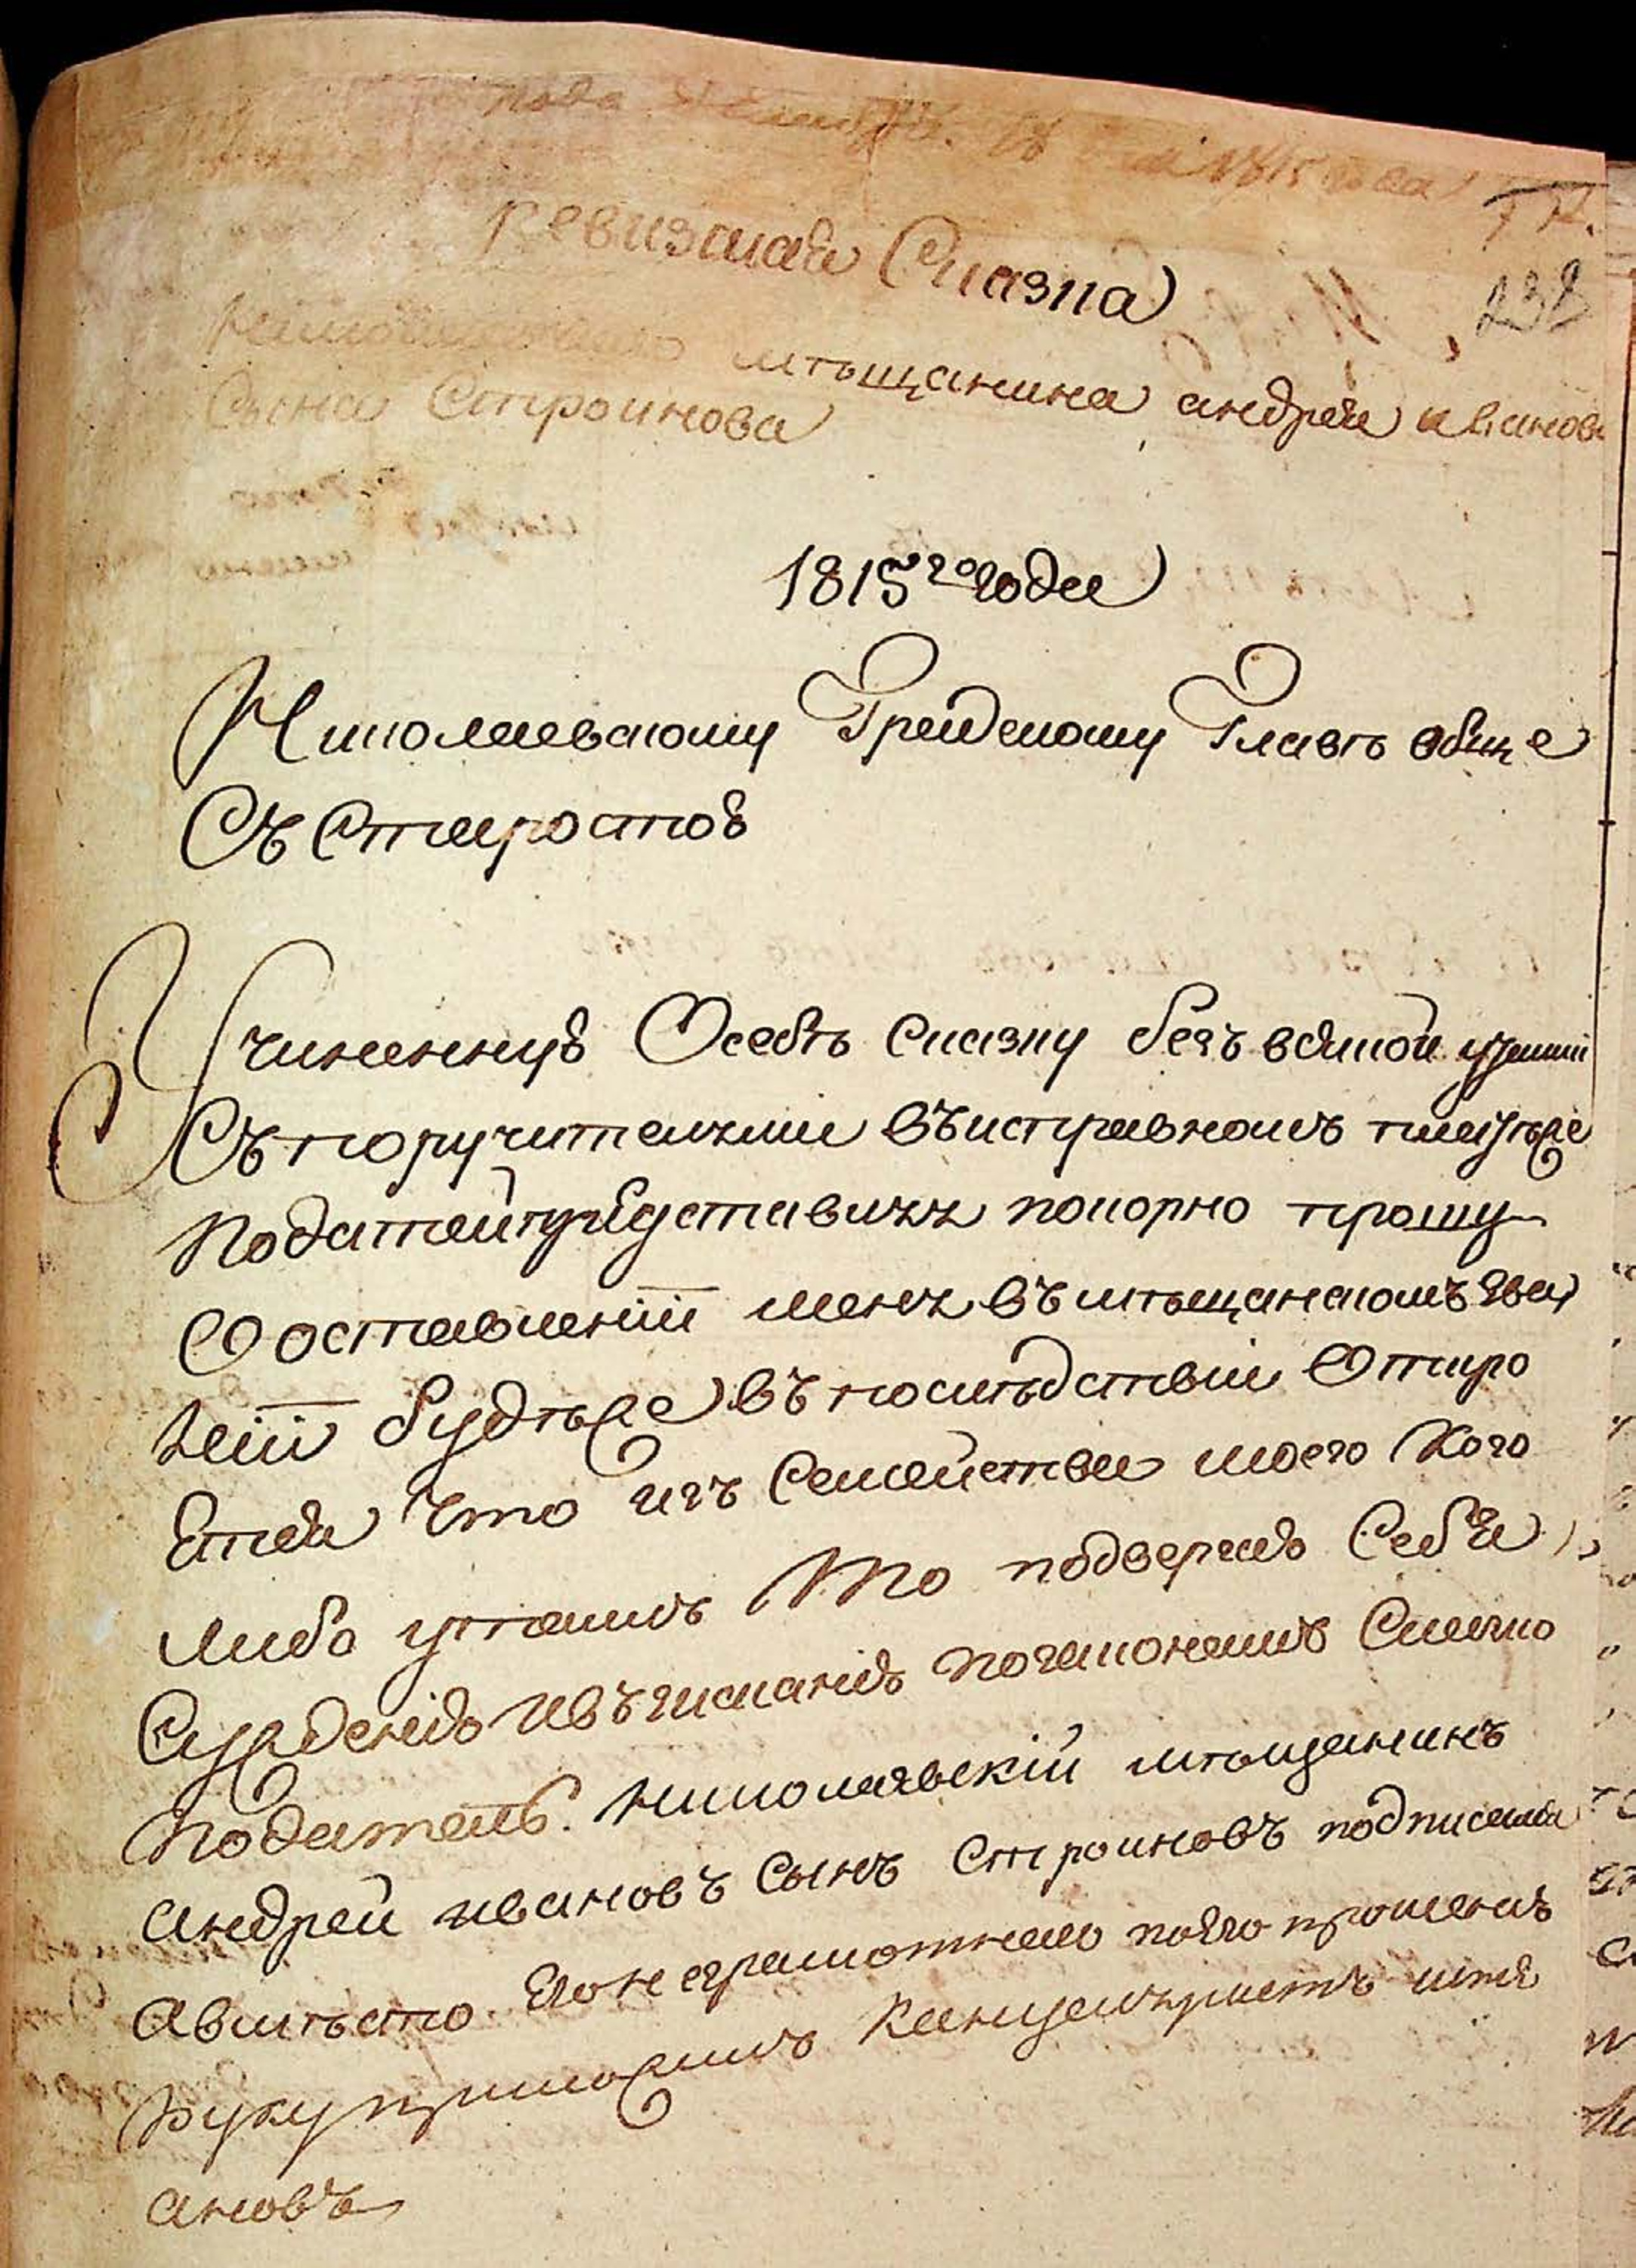 1815 года
Ревизская Сказка
232
мѣщанина андрея иванова
Сына Строинова
1815го года
Николаевскому Градскому Главѣ обще
Съ Старостою
Учиненную Осебѣ Сказку безъ всякой утайки
Съ поручителями въ исправномъ платеже
податей представляя покорно прошу
О оставленіи меня въ мѣщанскомъ зва
ніи будеже въ послѣдствіи Откро
ется Что изъ Семейства моего Кого
либо утаилъ То подвергаю Себя
Сужденію и взысканію по законамъ Сказко
Податель. николаевскій мѣщанинъ
андрей ивановъ Сынъ Строиновъ подписалъ
а вмѣсто Его неграмотнаго по его прошенію
руку приложилъ Канцеляристъ
ановъ